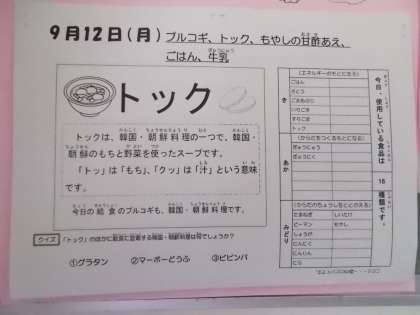 9月12日(月) ブルコギ、トック、もやしの甘酢あえ、
ごはん、牛乳
トック
トックは、韓国・朝鮮料理の一つで、韓国・
朝鮮のもちと野菜を使ったスープです。
「トッ」は「もち」、「クッ」は「汁」という意味
です。
今日の給食のブルコギも、韓国・朝鮮料理です。
クイズ
①グラタン ②マーボーどうふ ③ビビンバ
今日、使用している食品は 16 種類です。
き
(エネルギーのもとになる)
ごはん
さとう
ごまあぶら
いりごま
すりごま
トック
あか
(からだをつくるもとになる)
ぎゅうにゅう
ぎゅうにく
みどり
(からだのちょうしをととのえる)
たまねぎ しいたけ
ピーマン もやし
しょうが
にんにく
にんじん
にら